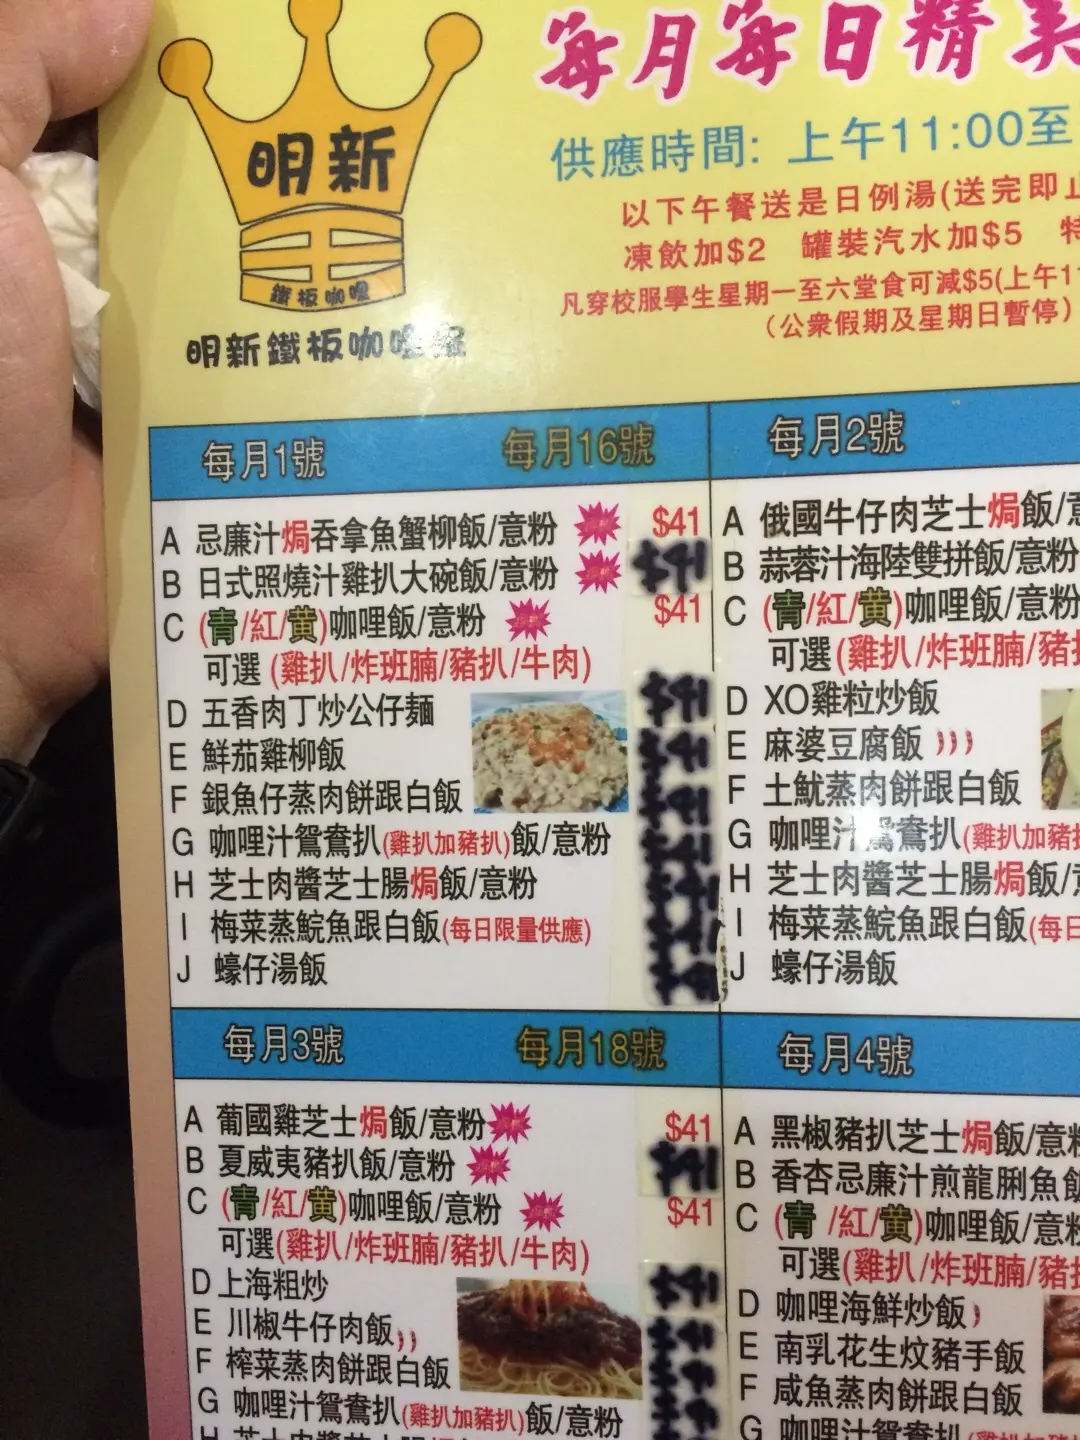 明新
鐵板咖喱
明新鐵板咖喱屋
每月每日精美
供應時間: 上午11:00至
以下午餐送是日例湯(送完即止
凍飲加$2 罐裝汽水加$5 特
凡穿校服學生星期一至六堂食可減$5(上午11
(公衆假期及星期日暫停)
每月1號 每月16號
A 忌廉汁焗吞拿魚蟹柳飯/意粉 $41
B 日式照燒汁雞扒大碗飯/意粉 $41
C (青/紅/黄)咖哩飯/意粉 $41
可選 (雞扒/炸班腩/豬扒/牛肉)
D 五香肉丁炒公仔麵 $41
E 鮮茄雞柳飯
F 銀魚仔蒸肉餅跟白飯
G 咖哩汁鴛鴦扒(雞扒加豬扒)飯/意粉
H 芝士肉醬芝士腸焗飯/意粉
I 梅菜蒸鯇魚跟白飯(每日限量供應)
J 蠔仔湯飯
每月2號
A 俄國牛仔肉芝士焗飯/意
B 蒜蓉汁海陸雙拼飯/意粉
C (青/紅/黄)咖哩飯/意粉
可選(雞扒/炸班腩/豬扒
D XO雞粒炒飯
E 麻婆豆腐飯
F 土魷蒸肉餅跟白飯
G 咖哩汁鴛鴦扒(雞扒加豬扒
H 芝士肉醬芝士腸焗飯/意
I 梅菜蒸鯇魚跟白飯(每日
J 蠔仔湯飯
每月3號 每月18號
A 葡國雞芝士焗飯/意粉 $41
B 夏威夷豬扒飯/意粉 $41
C (青/紅/黄)咖哩飯/意粉 $41
可選(雞扒/炸班腩/豬扒/牛肉)
D 上海粗炒 $41
E 川椒牛仔肉飯
F 榨菜蒸肉餅跟白飯
G 咖哩汁鴛鴦扒(雞扒加豬扒)飯/意粉
H 芝士肉醬芝士腸
每月4號
A 黑椒豬扒芝士焗飯/意粉
B 香杏忌廉汁煎龍脷魚飯
C (青/紅/黄)咖哩飯/意粉
可選(雞扒/炸班腩/豬扒
D 咖哩海鮮炒飯
E 南乳花生炆豬手飯
F 咸魚蒸肉餅跟白飯
G 咖哩汁鴛鴦扒(雞扒加豬